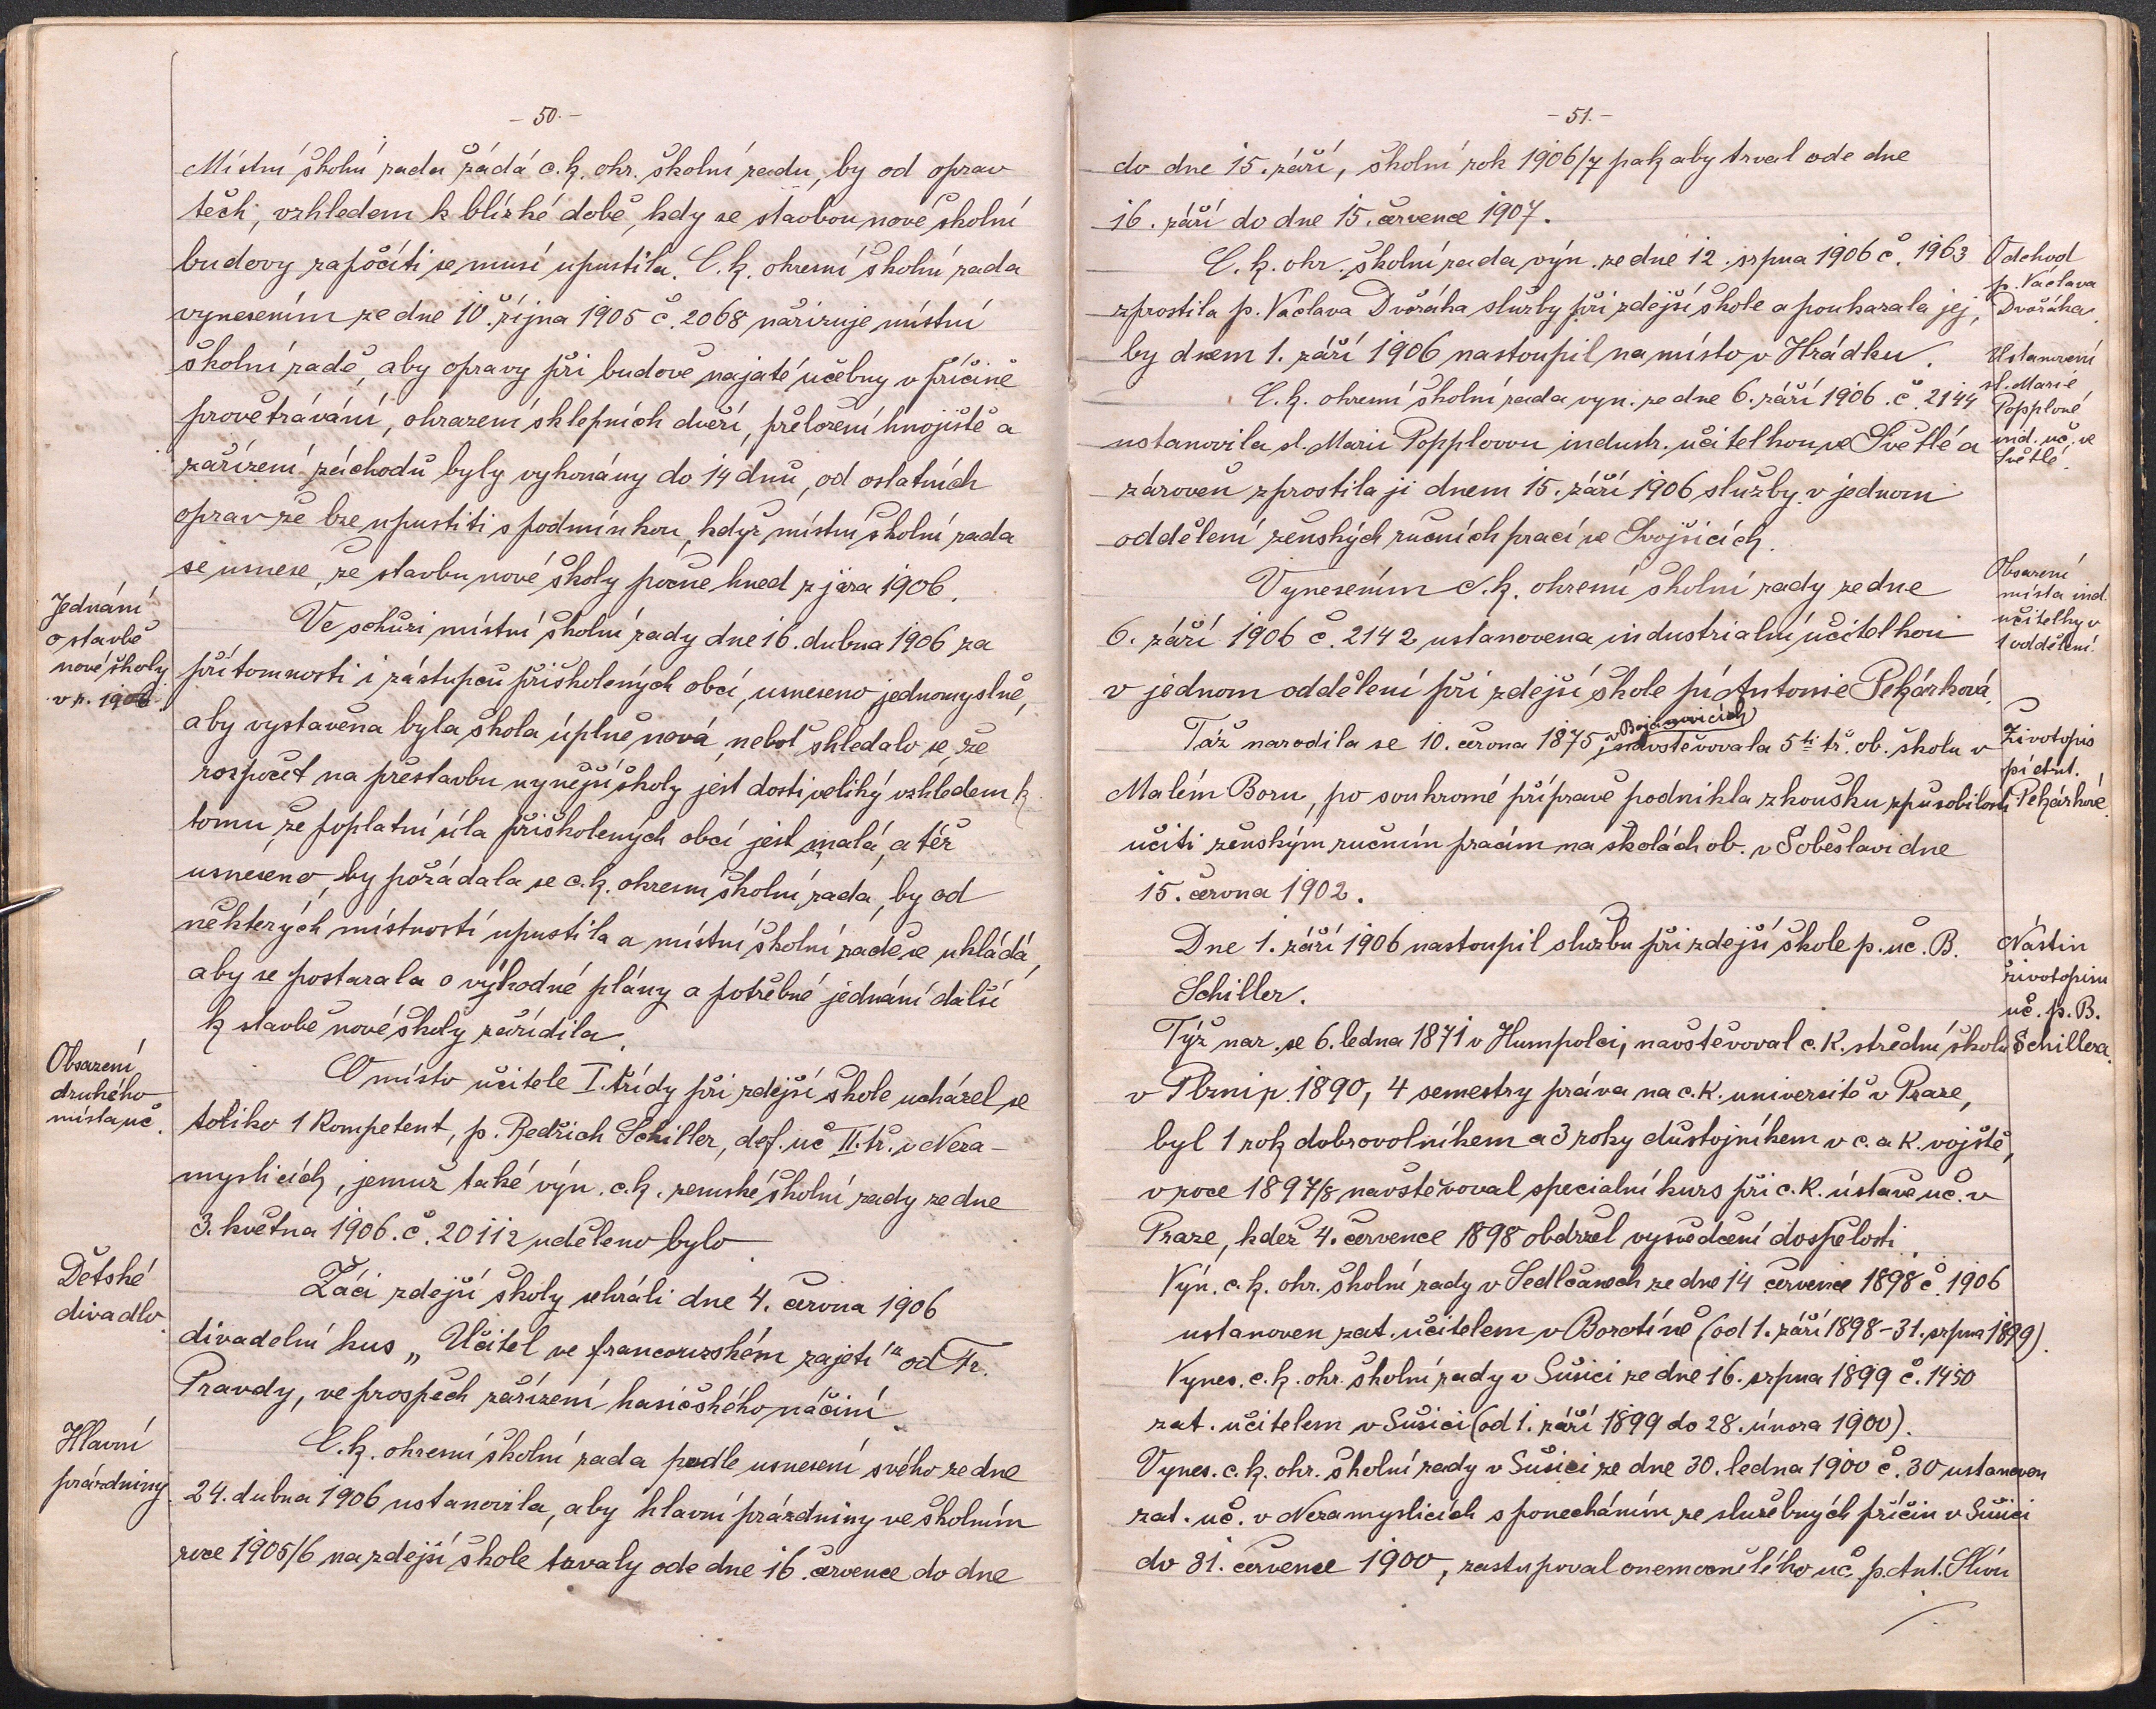 - 50. -
Místní školní rada žádá c. k. okr. školní radu, by od oprav
těch, vzhledem k blízké době, kdy se stavbou nové školní
budovy započíti se musí upustila. C. k. okresní školní rada
vynesením ze dne 10. října 1905 č. 2068 nařizuje místní
školní radě, aby opravy při budově najaté učebny v příčině
provětrávání, ohrazení sklepních dveří, přeložení hnojiště a
zařízení záchodů byly vykonány do 14 dnů, od ostatních
oprav že lze upustiti s podmínkou, když místní školní rada
se usnese, že stavbu nové školy počne hned z jara 1906.
Jednání
o stavbě
nové školy
v r. 1906.
Ve schůzi místní školní rady dne 16. dubna 1906 za
přítomnosti i zástupců přiškolených obcí, usneseno jednomyslně,
aby vystavěna byla škola úplně nová, neboť shledalo se, že
rozpočet na přestavbu nynější školy jest dosti veliký vzhledem k
tomu, že poplatní síla přiškolených obcí jest malá, a též
usneseno, by požádala se c. k. okresní školní rada, by od
některých místností upustila a místní školní radě se ukládá,
aby se postarala o výhodné plány a potřebné jednání další
k stavbě nové školy zařídila.
Obsazení
druhého
místa uč.
O místo učitele I. třídy při zdejší škole ucházel se
toliko 1 kompetent, p. Bedřich Schiller, def. uč II. tř. v Neza-
myslicích, jemuž také výn. c. k. zemské školní rady ze dne
3. května 1906. č. 20112 uděleno bylo.
Dětské
divadlo.
Žáci zdejší školy sehráli dne 4. června 1906
divadelní kus „Učitel ve francouzském zajetí" od Fr.
Pravdy, ve prospěch zařízení hasičského náčiní.
Hlavní
prázdniny.
C. k. okresní školní rada podle usnesení svého ze dne
24. dubna 1906 ustanovila, aby hlavní prázdniny ve školním
roce 1905/6 na zdejší škole trvaly ode dne 16. července do dne
- 51. -
do dne 15. září, školní rok 1906/7 pak aby trval ode dne
16. září do dne 15. července 1907.
Odchod
p. Václava
Dvořáka.
C. k. okr. školní rada výn. ze dne 12. srpna 1906 č. 1963
zprostila p. Václava Dvořáka služby při zdejší škole a poukazala jej,
by dnem 1. září 1906 nastoupil na místo v Hrádku.
Ustanovení
sl. Marie
Popplové
ind. uč. ve
Světlé.
C. k. okresní školní rada vyn. ze dne 6. září 1906. č. 2144
ustanovila sl. Marii Popplovou industr. učitelkou ve Světlé a
zároveň zprostila ji dnem 15. září 1906 služby v jednom
oddělení ženských ručních prací ve Svojšicích.
Obsazení
místa ind.
učitelky v
1 oddělení.
Vynesením c. k. okresní školní rady ze dne
6. září 1906 č. 2142 ustanovena industrialní učitelkou
v jednom oddělení při zdejší škole pí Antonie Pekárková.
Životopis
pí Ant.
Pekárkové.
v Bojanovicích
Táž narodila se 10. června 1875, navštěvovala 5ti tř. ob. školu v
Malém Boru, po soukromé přípravě podnikla zkoušku způsobilosti
učiti ženským ručním pracím na školách ob. v Soběslavi dne
15. června 1902.
Nástin
životopisu
uč. p. B.
Schillera.
Dne 1. září 1906 nastoupil službu při zdejší škole p. uč. B.
Schiller.
Týž nar. se 6. ledna 1871 v Humpolci, navštěvoval c. k. střední školu
v Plzni r. 1890, 4 semestry práva na c. k. universitě v Praze,
byl 1 rok dobrovolníkem a 3 roky důstojníkem v c. a k. vojště,
v roce 1897/8 navštěvoval specialní kurs při c. k. ústavě uč. v
Praze, kdež 4. července 1898 obdržel vysvědčení dospělosti.
Výn. c. k. okr. školní rady v Sedlčanech ze dne 14 července 1898 č. 1906
ustanoven zat. učitelem v Borotíně (od 1. září 1898 - 31. srpna 1899).
Vynes. c. k. okr. školní rady v Sušici ze dne 16. srpna 1899 č. 1450
zat. učitelem v Sušici (od 1. září 1899 do 28. února 1900).
Vynes. c. k. okr. školní rady v Sušici ze dne 30. ledna 1900 č. 30 ustanoven
zat. uč. v Nezamyslicích s ponecháním ze služebných příčin v Sušici
do 31. července 1900, zastupoval onemocnělého uč. p. Ant.